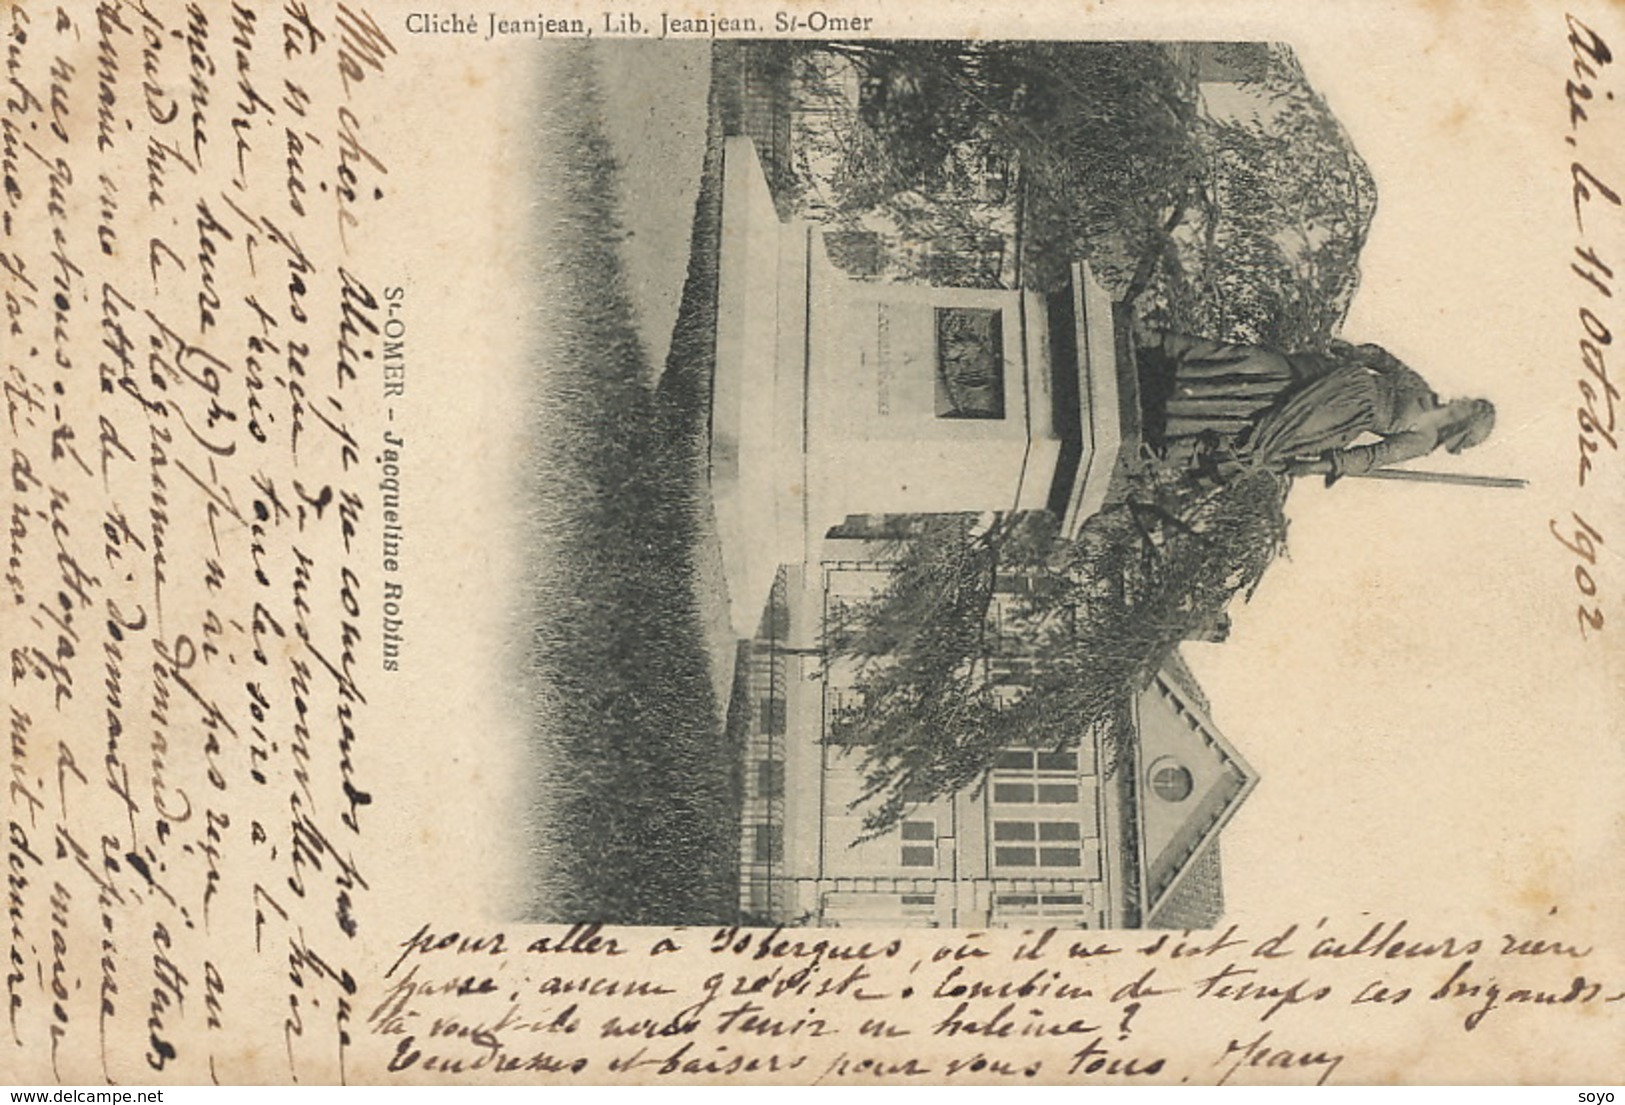 Cliché Jeanjean, Lib. Jeanjean. St-Omer
St-OMER - Jacqueline Robins
Aire, le 11 Octobre 1902
Ma chère Alice, je ne comprends pas que
tu n'aies pas reçu de mes nouvelles hier
matin, je t'écris tous les soirs à la
même heure (9h.) - je n'ai pas reçu au-
jourd'hui le télégramme demandé; j'attends
demain une lettre de toi donnant réponse
à mes questions. - Le nettoyage de la maison
continue - J'ai été dérangé, la nuit dernière
pour aller à Isbergues, où il ne s'est d'ailleurs rien
passé; aucun gréviste. Combien de temps ces brigands-
là vont-ils nous tenir en haleine?
Tendresses et baisers pour vous tous.
delcampe.net
soyo